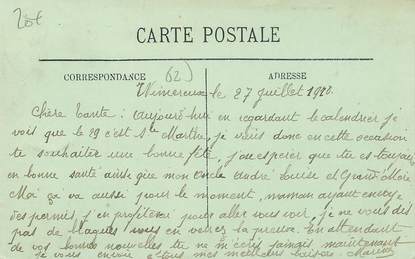 20f
CARTE POSTALE
CORRESPONDANCE (62) ADRESSE
Wimereux le 27 juillet 1920.
Chère tante : Aujourd'hui en regardant le calendrier je
vois que le 29 c'est Ste Marthe, je viens donc en cette occasion
te souhaiter une bonne fête, j'ose espérer que tu es toujours
en bonne santé ainsi que mon oncle André Louise et Grand-Mère
Moi ça va aussi pour le moment, maman ayant envoyé
des permis, j'en profiterai pour aller vous voir, je ne vous dis
pas de blagues vous en verrez la preuve. En attendant
de vos bonnes nouvelles tu ne m'écris jamais, maintenant
je vous envoie à tous mes meilleurs baisers